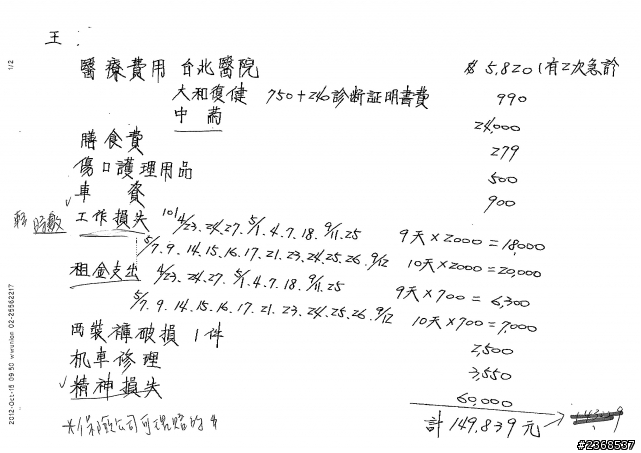 王:
醫療費用 台北醫院 $5,820(有2次急診
大和復健 750+240診斷証明書費 990
中葯 24,000
膳食費 279
傷口護理用品 500
車資 900
工作損失 101 4/23.24.27. 5/1.4.7.18. 9/11.25 9天×2000=18,000
5/7.9.14.15.16.17.21.23.24.25.26. 9/12 10天×2000=20,000
租金支出 4/23.24.27. 5/1.4.7.18. 9/11.25 9天×700=6,300
5/7.9.14.15.16.17.21.23.24.25.26. 9/12 10天×700=7,000
雨裝褲破損1件 2,500
机車修理 3,550
精神損失 60,000
計149,839元
*保險公司可理賠的*
1/2
2012-Oct-15 09:50 wwunion 02-25562217
#2368537